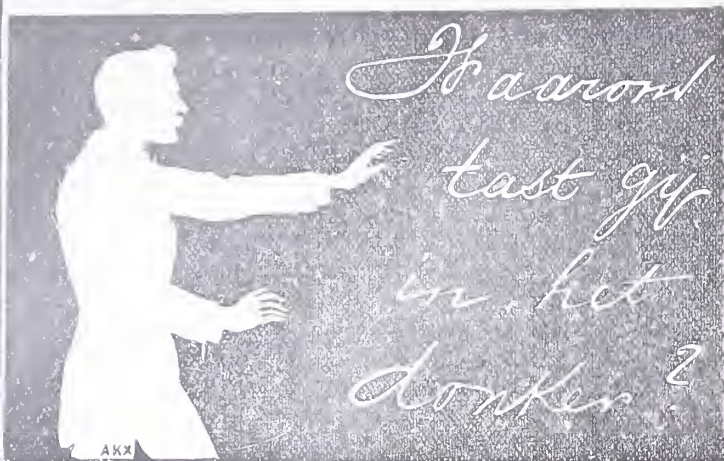 Waarom
tast gij
in het
donker ?
AKX